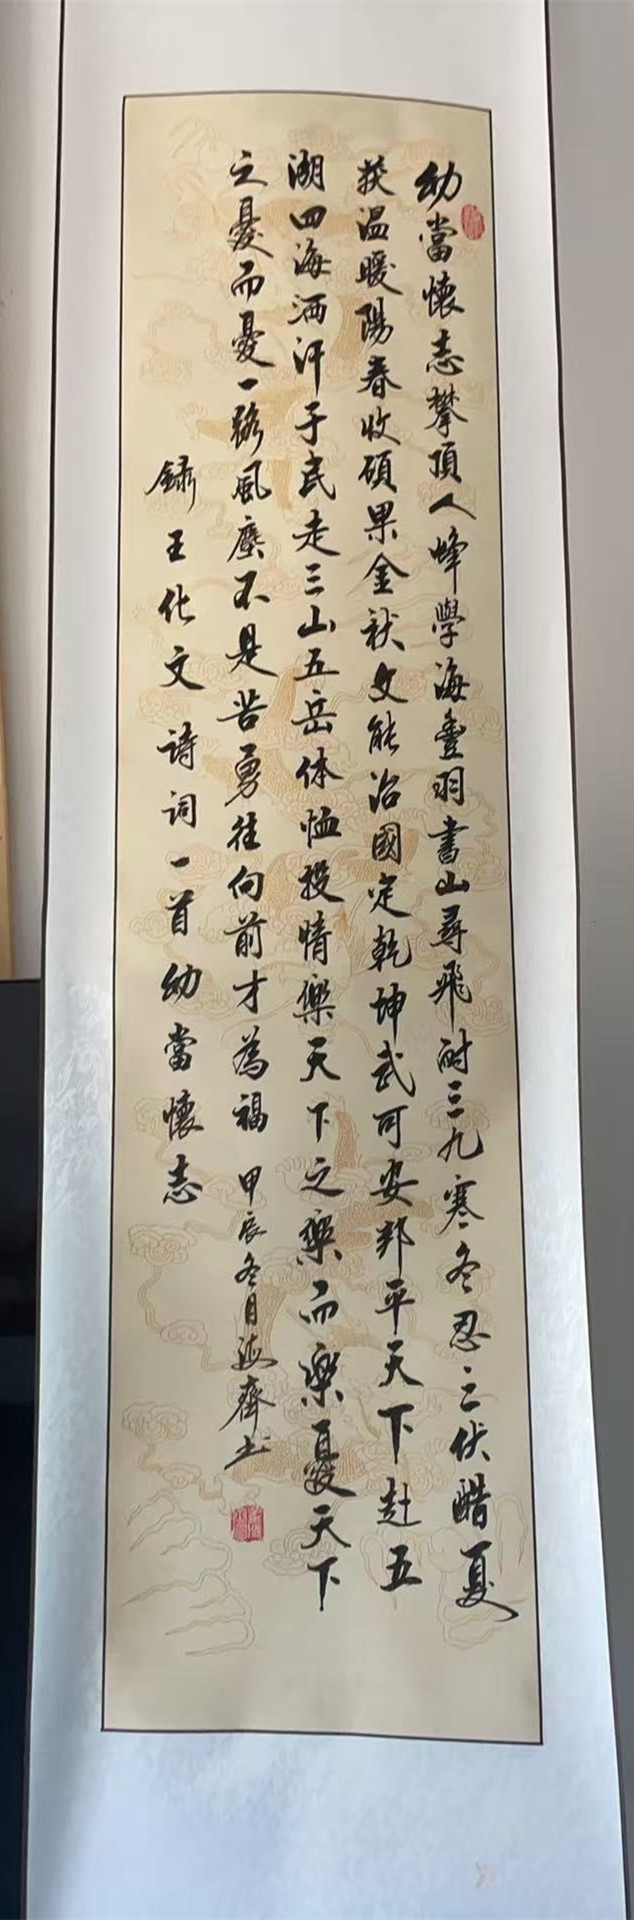 幼當懷志攀頂人峰學海豐羽書山尋飛耐三九寒冬忍三伏酷夏
获温暖陽春收碩果金秋文能治國定乾坤武可安邦平天下赴五
湖四海洒汗于民走三山五岳体恤投情樂天下之樂而樂憂天下
之憂而憂一路風塵不是苦勇往向前才為福 甲辰冬月 齊书
録王化文詩詞一首幼當懷志